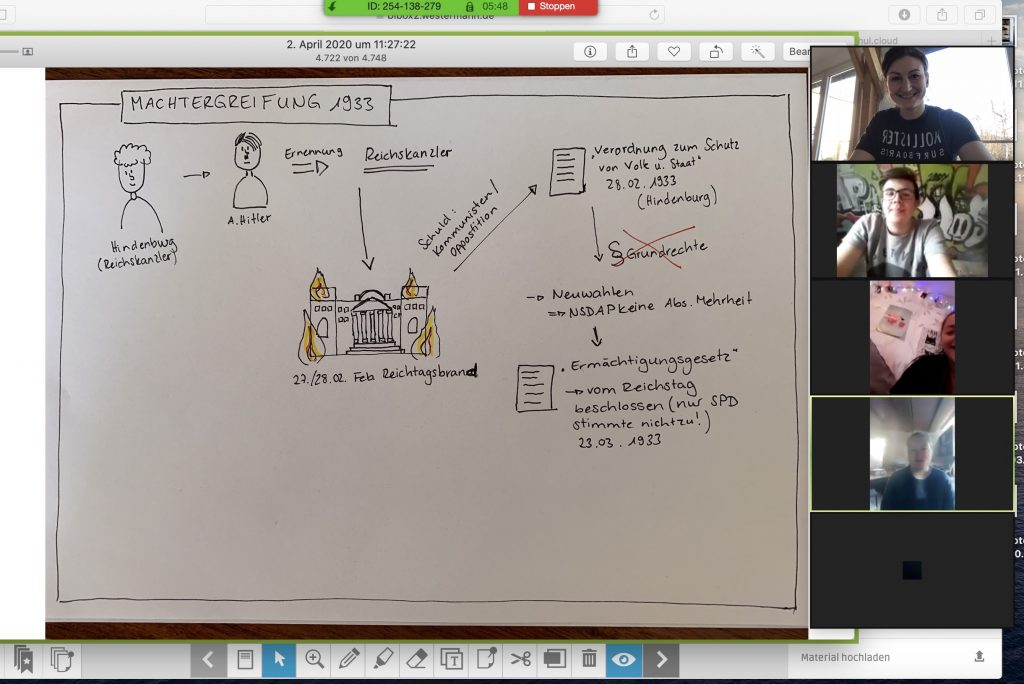 ID: 254-138-279
05:48
Stoppen
biboxz.westermann.de
2. April 2020 um 11:27:22
4.722 von 4.748
Bear
hul.cloud
MACHTERGREIFUNG 1933
Hindenburg
(Reichskanzler)
A.Hitler
Ernennung
Reichskanzler
27./28.02. Feb. Reichtagsbrand
Schuld:
Kommunisten/
Oppostition
„Verordnung zum Schutz
von Volk u. Staat"
28.02.1933
(Hindenburg)
§ Grundrechte
Neuwahlen
NSDAP keine Abs. Mehrheit
„Ermächtigungsgesetz"
vom Reichstag
beschlossen (nur SPD
stimmte nicht zu!)
23.03.1933
HOLLISTER
SURFBOARDS
Material hochladen